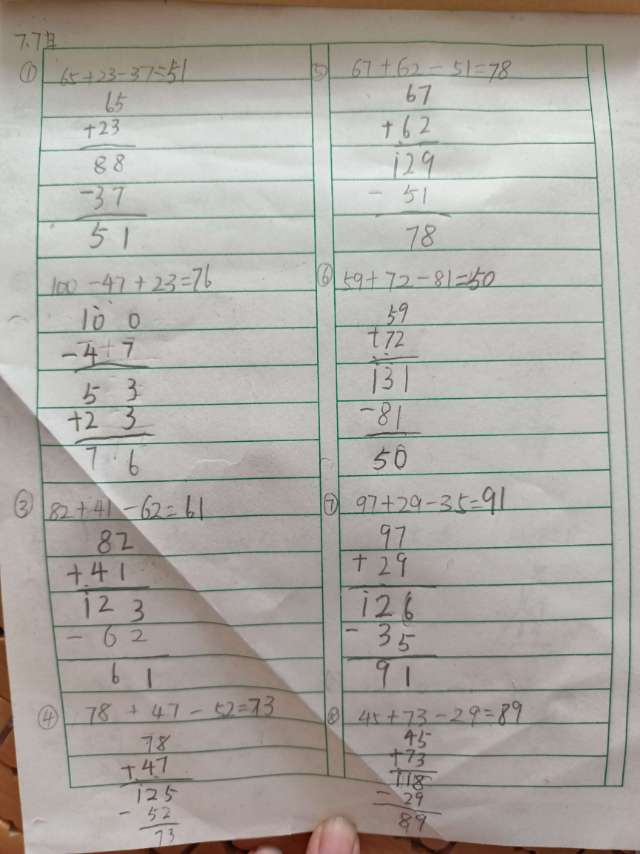 7.7日
① 65+23-37=51
65
+23
88
-37
51
100-47+23=76
100
-47
53
+23
76
③ 82+41-62=61
82
+41
123
-62
61
④ 78+47-52=73
78
+47
125
-52
73
⑤ 67+62-51=78
67
+62
129
-51
78
⑥ 59+72-81=50
59
+72
131
-81
50
⑦ 97+29-35=91
97
+29
126
-35
91
⑧ 45+73-29=89
45
+73
118
-29
89